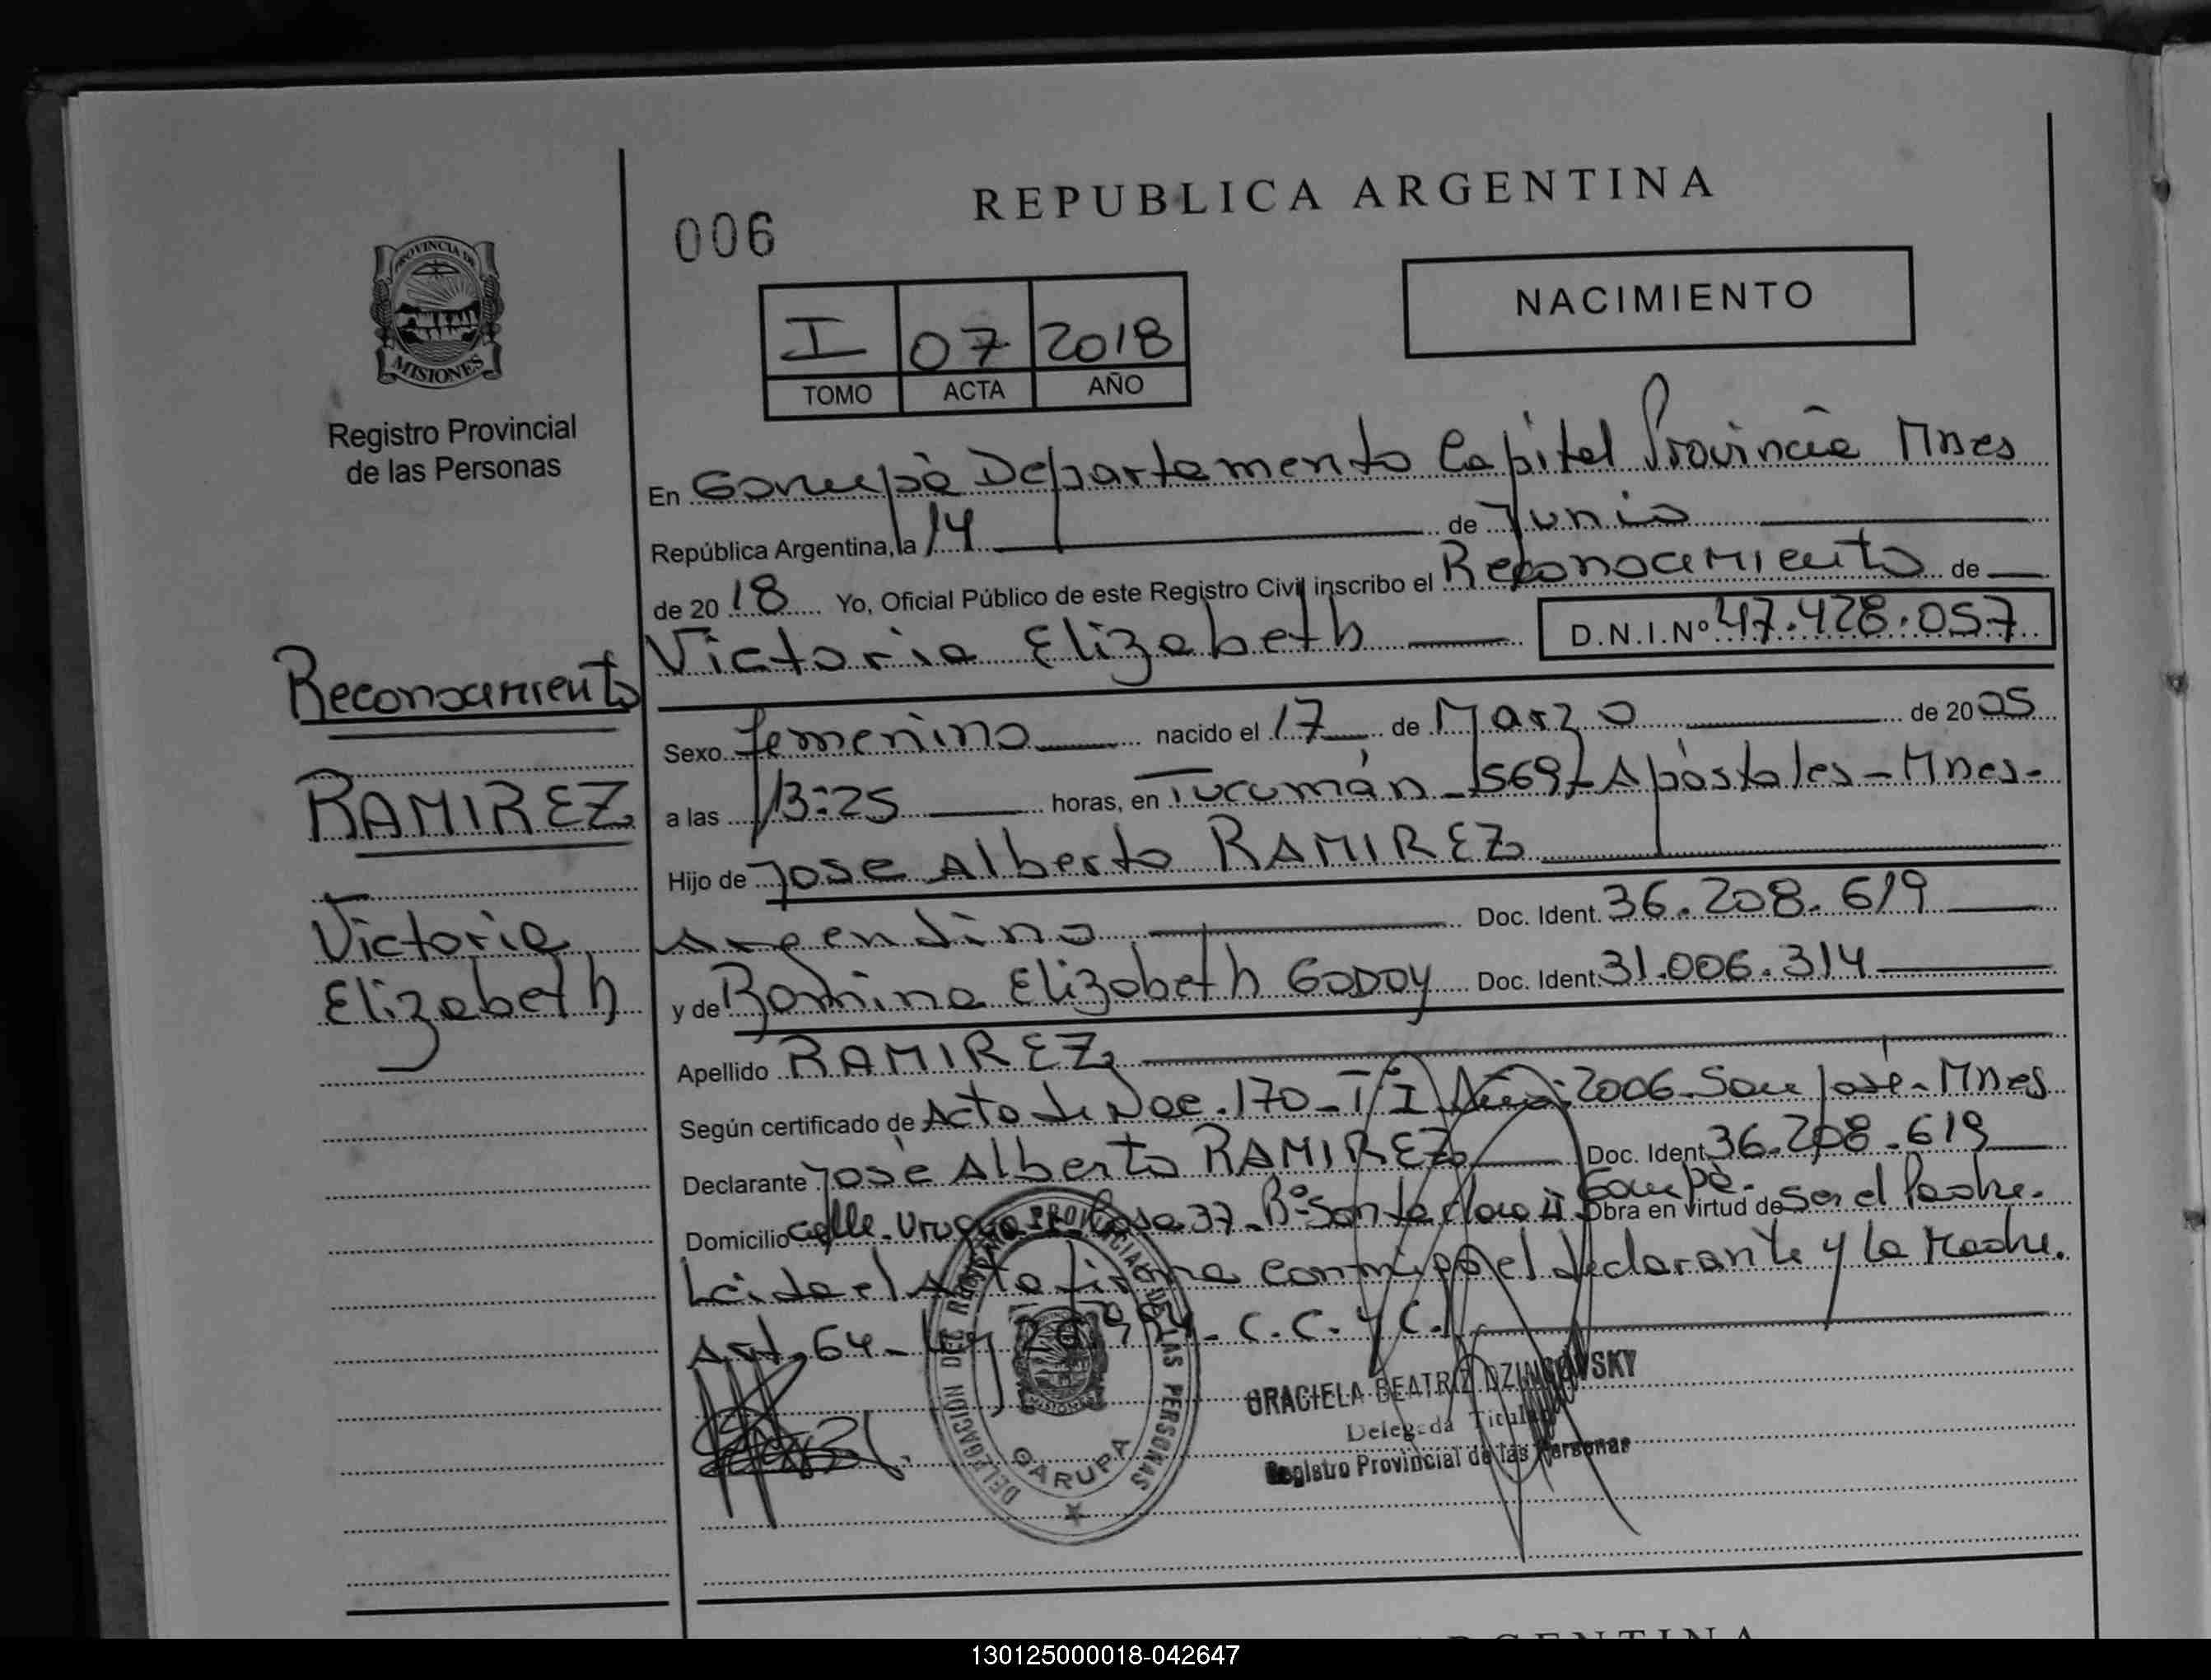 REPUBLICA ARGENTINA
006
NACIMIENTO
I 07 2018
TOMO ACTA AÑO
PROVINCIA DE
MISIONES
Registro Provincial
de las Personas
En Garupà Departamento Capital Provincia Mnes
República Argentina, a 14 de Junio
de 2018 Yo, Oficial Público de este Registro Civil inscribo el Reconocimiento de
Victoria Elizabeth D.N.I.Nº 47.428.057
Reconocimiento
RAMIREZ
Victoria
Elizabeth
Sexo femenino nacido el 17 de Marzo de 2005
a las 13:25 horas, en Tucumán - 569 - Apòstoles - Mnes-
Hijo de Jose Alberto RAMIREZ
Argentino Doc. Ident. 36.208.619
y de Romina Elizabeth GODOY Doc. Ident. 31.006.314
Apellido RAMIREZ
Según certificado de Acta de Nac. 170 - Tº I Año: 2006 - San José - Mnes
Declarante Josè Alberto RAMIREZ Doc. Ident. 36.208.619
Garupà -
Domicilio calle Uruguay Casa 37 - Bº Santa Clara II Obra en virtud de Ser el Padre.
Leida el Acta firma conmigo el declarante y la Madre.
Art. 64 - Ley 26.994 - C.C. y C.
DELEGACION DEL REGISTRO PROVINCIAL DE LAS PERSONAS
GARUPA
GRACIELA BEATRIZ DZINGOVSKY
Delegada Titular
Registro Provincial de las Personas
ARGENTINA
130125000018-042647